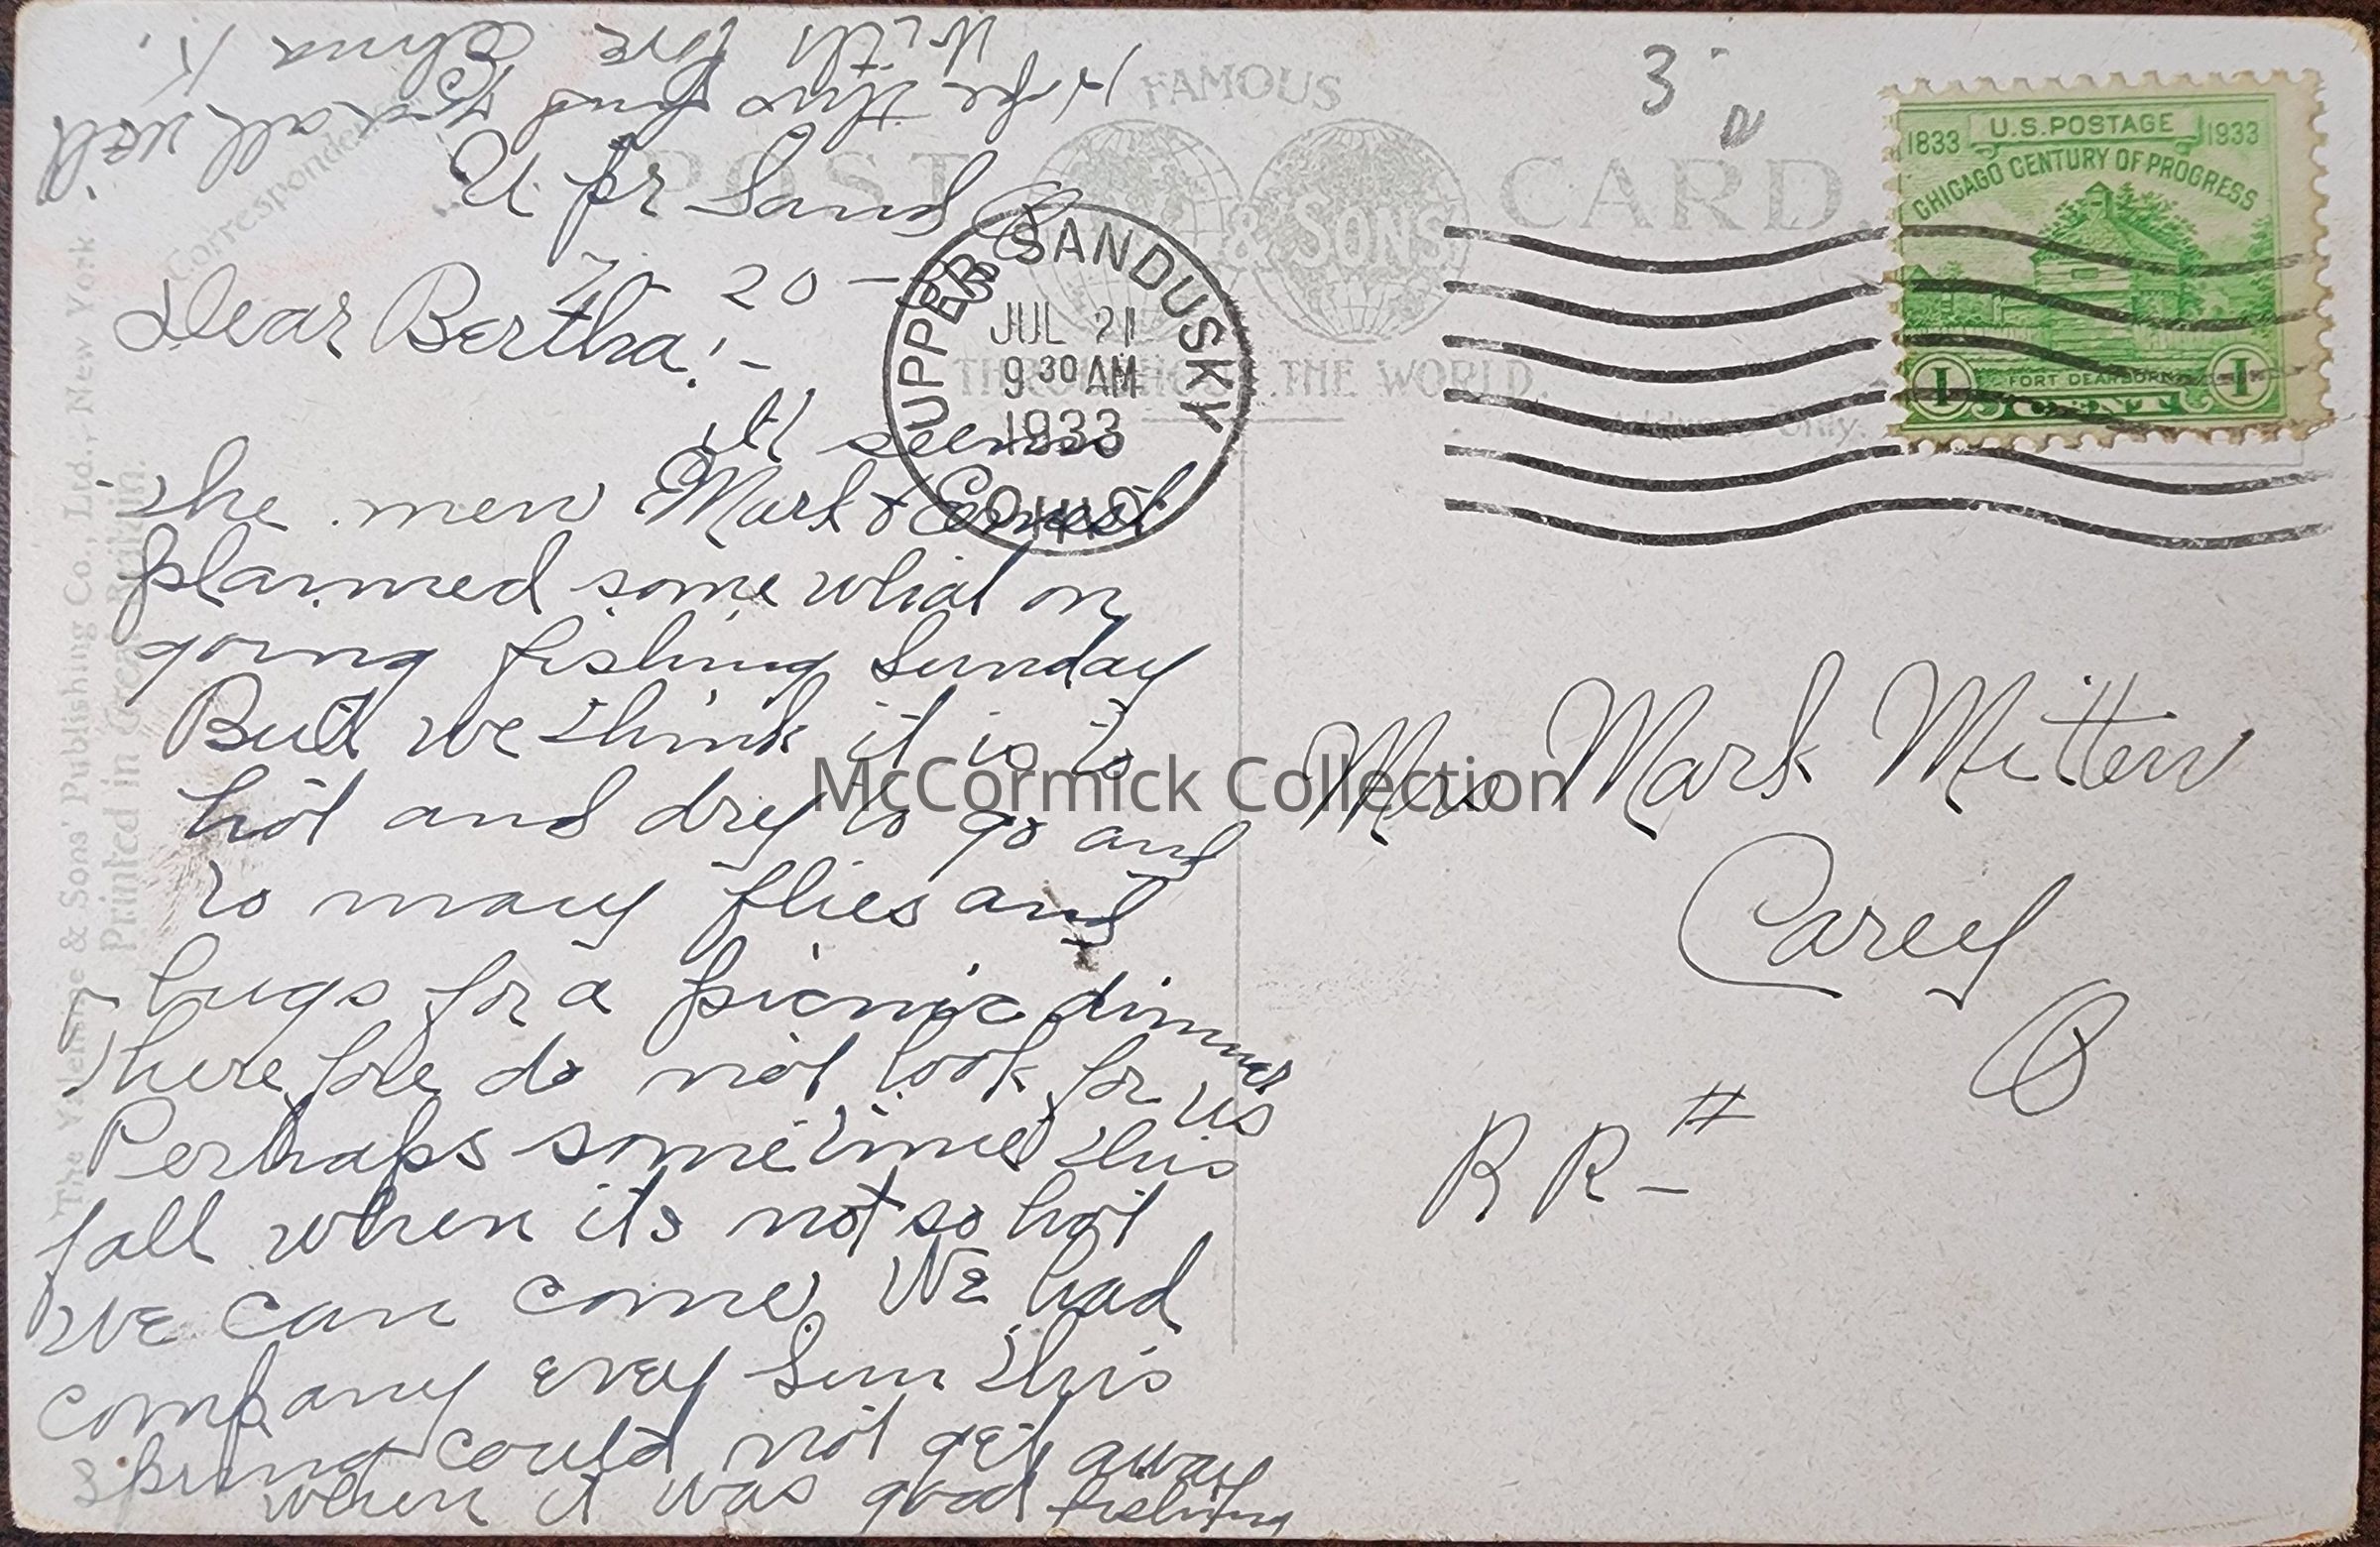 FAMOUS
POST CARD.
& SONS
THROUGHOUT THE WORLD.
Correspondence
Address Only.
The Valentine & Sons' Publishing Co., Ltd., New York
Printed in Great Britain.
3
U.S. POSTAGE
1833 1933
CHICAGO CENTURY OF PROGRESS
FORT DEARBORN
1 1
UPPER SANDUSKY
JUL 21
9 30 AM
1933
OHIO
U pr Sand O
7- 20 -
Dear Bertha! -
It seems
the men Mark & Ernest
planned some what on
going fishing Sunday
But we think it is to
hot and dry to go and
so many flies and
bugs for a picnic dinner
Therefore do not look for us
Perhaps sometime this
fall when its not so hot
we can come. We had
company evey Sun this
spring could not get away
when it was good fishing
Hope this finds you all well
With love Elma K.
Mrs Mark Mitten
Carey
O
RR- #
McCormick Collection